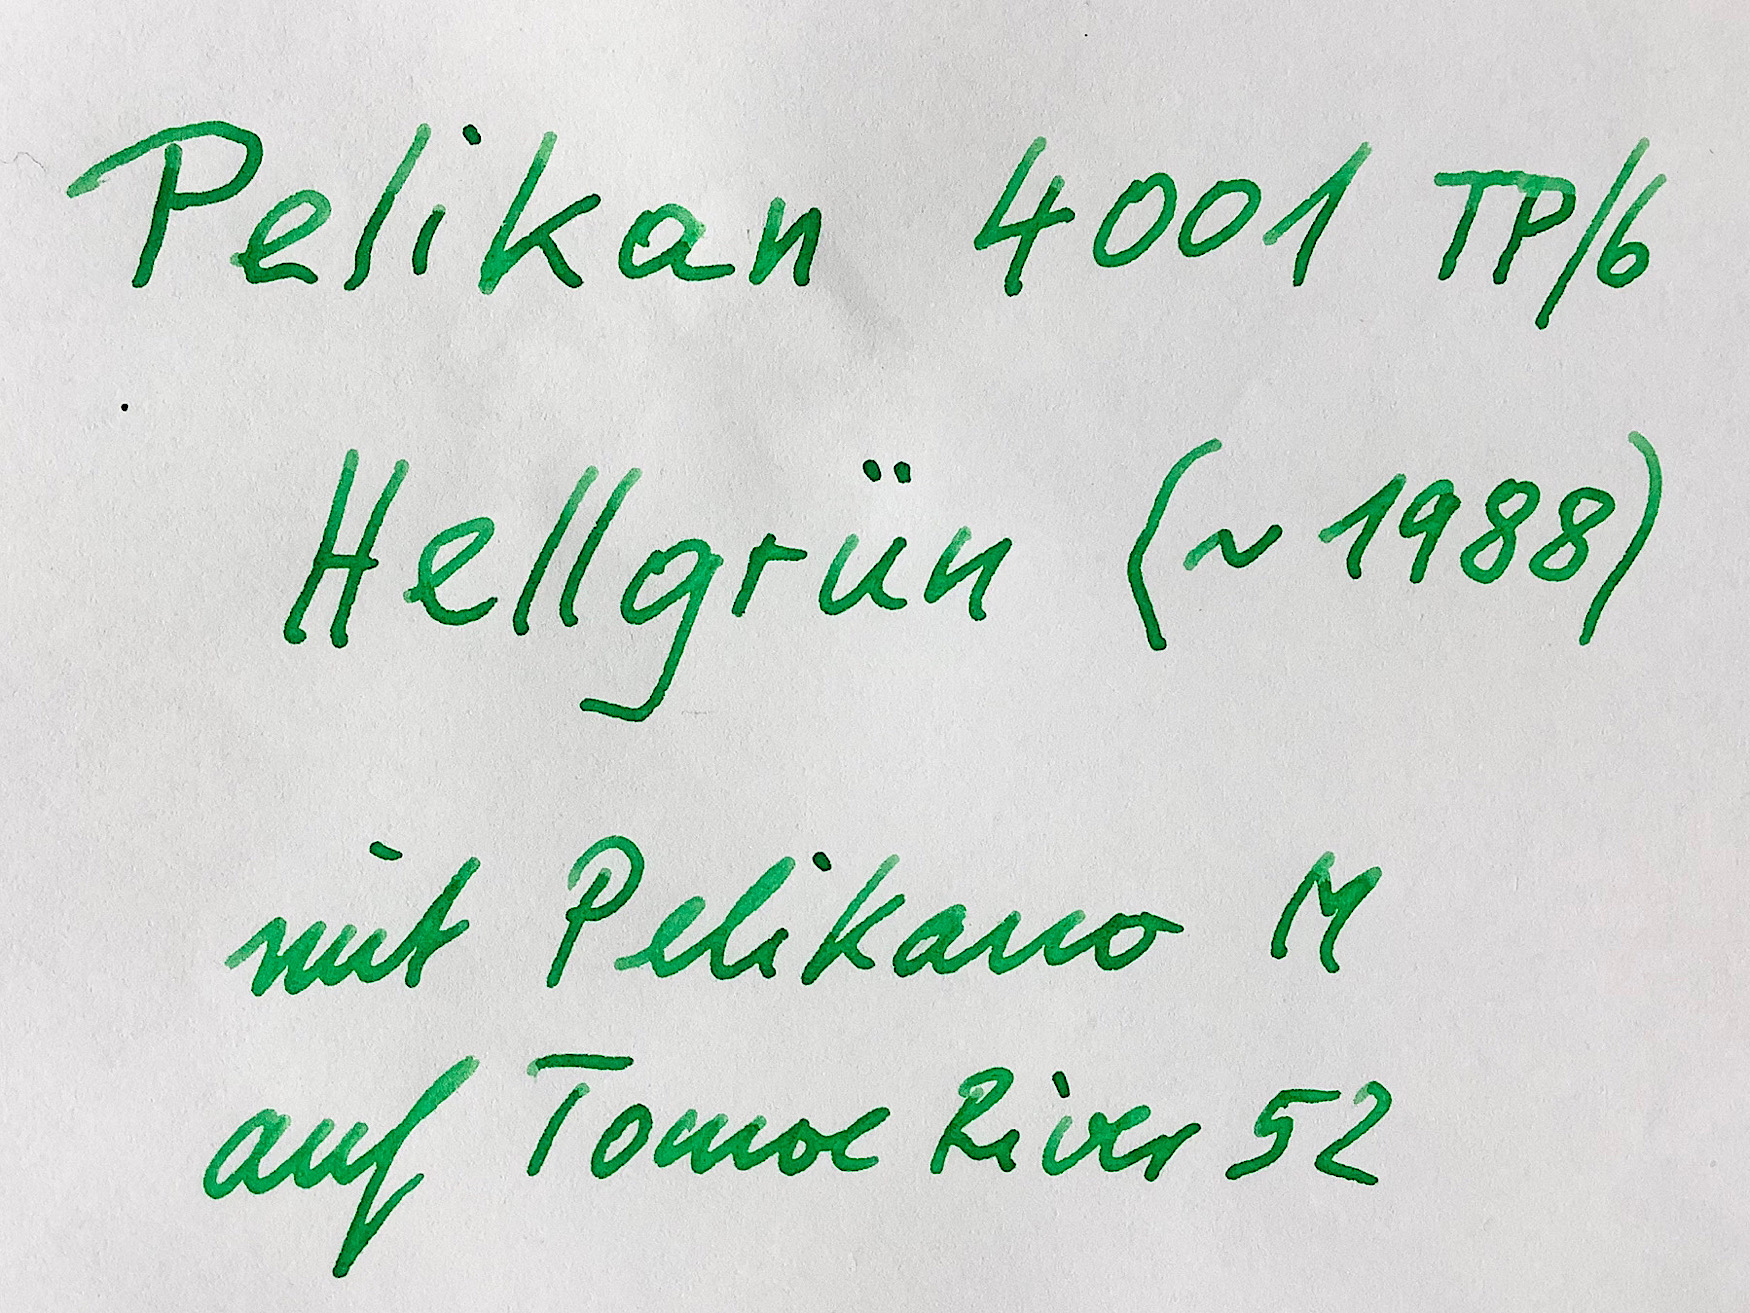 Pelikan 4001 TP/6
Hellgrün (~1988)
mit Pelikano M
auf Tomoe River 52